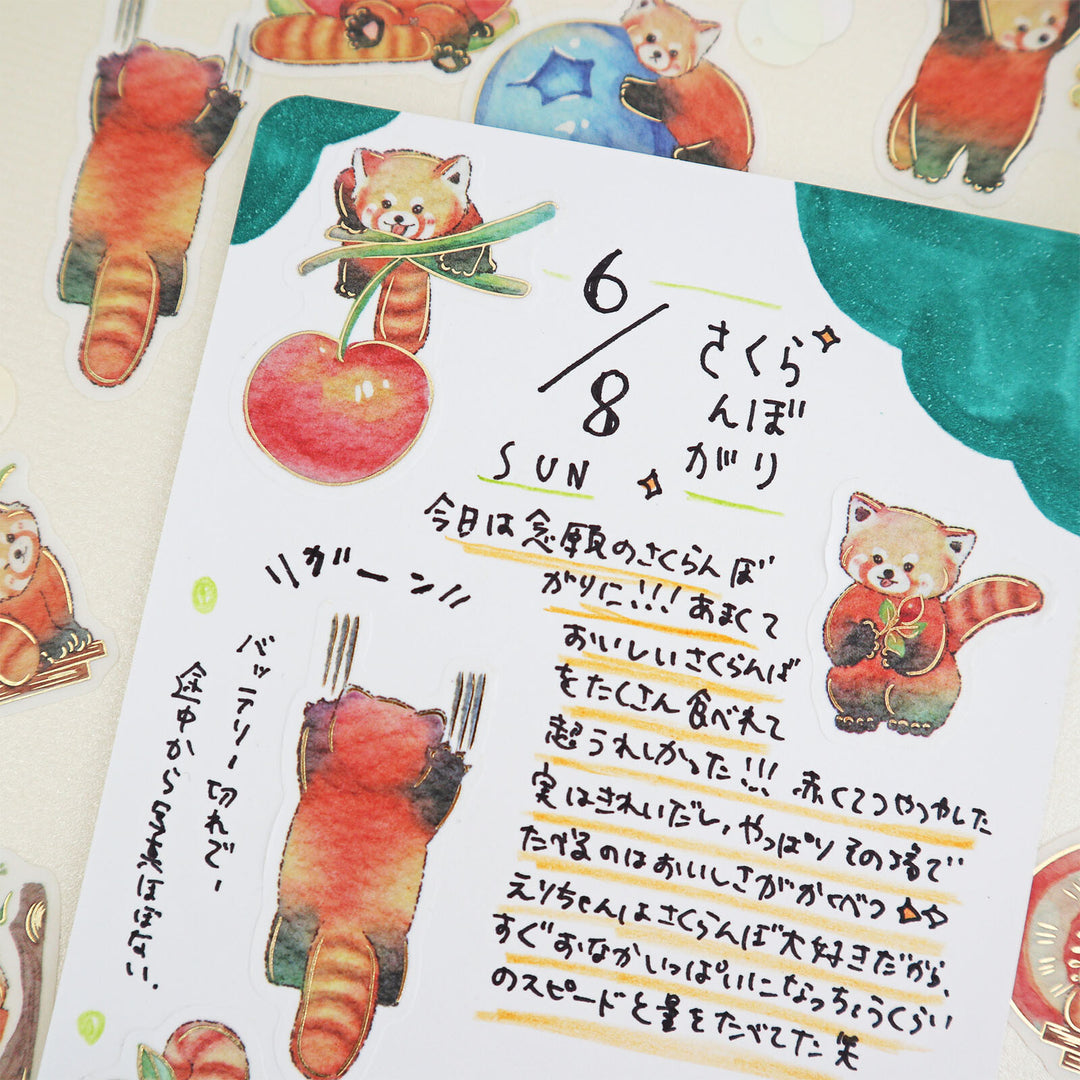 6/8
SUN
さくら
んぼ
がり
今日は念願のさくらんぼ
がりに!!!あまくて
おいしいさくらんぼ
をたくさん食べれて
超うれしかった!!!
赤くてつやつやした
実はきれいだし、やっぱりその場で
たべるのはおいしさがかくべつ
えりちゃんはさくらんぼ大好きだから、
すぐおなかいっぱいになっちょうくらい
のスピードと量をたべてた笑
ガーン
バッテリー切れで、
途中から写真はない.